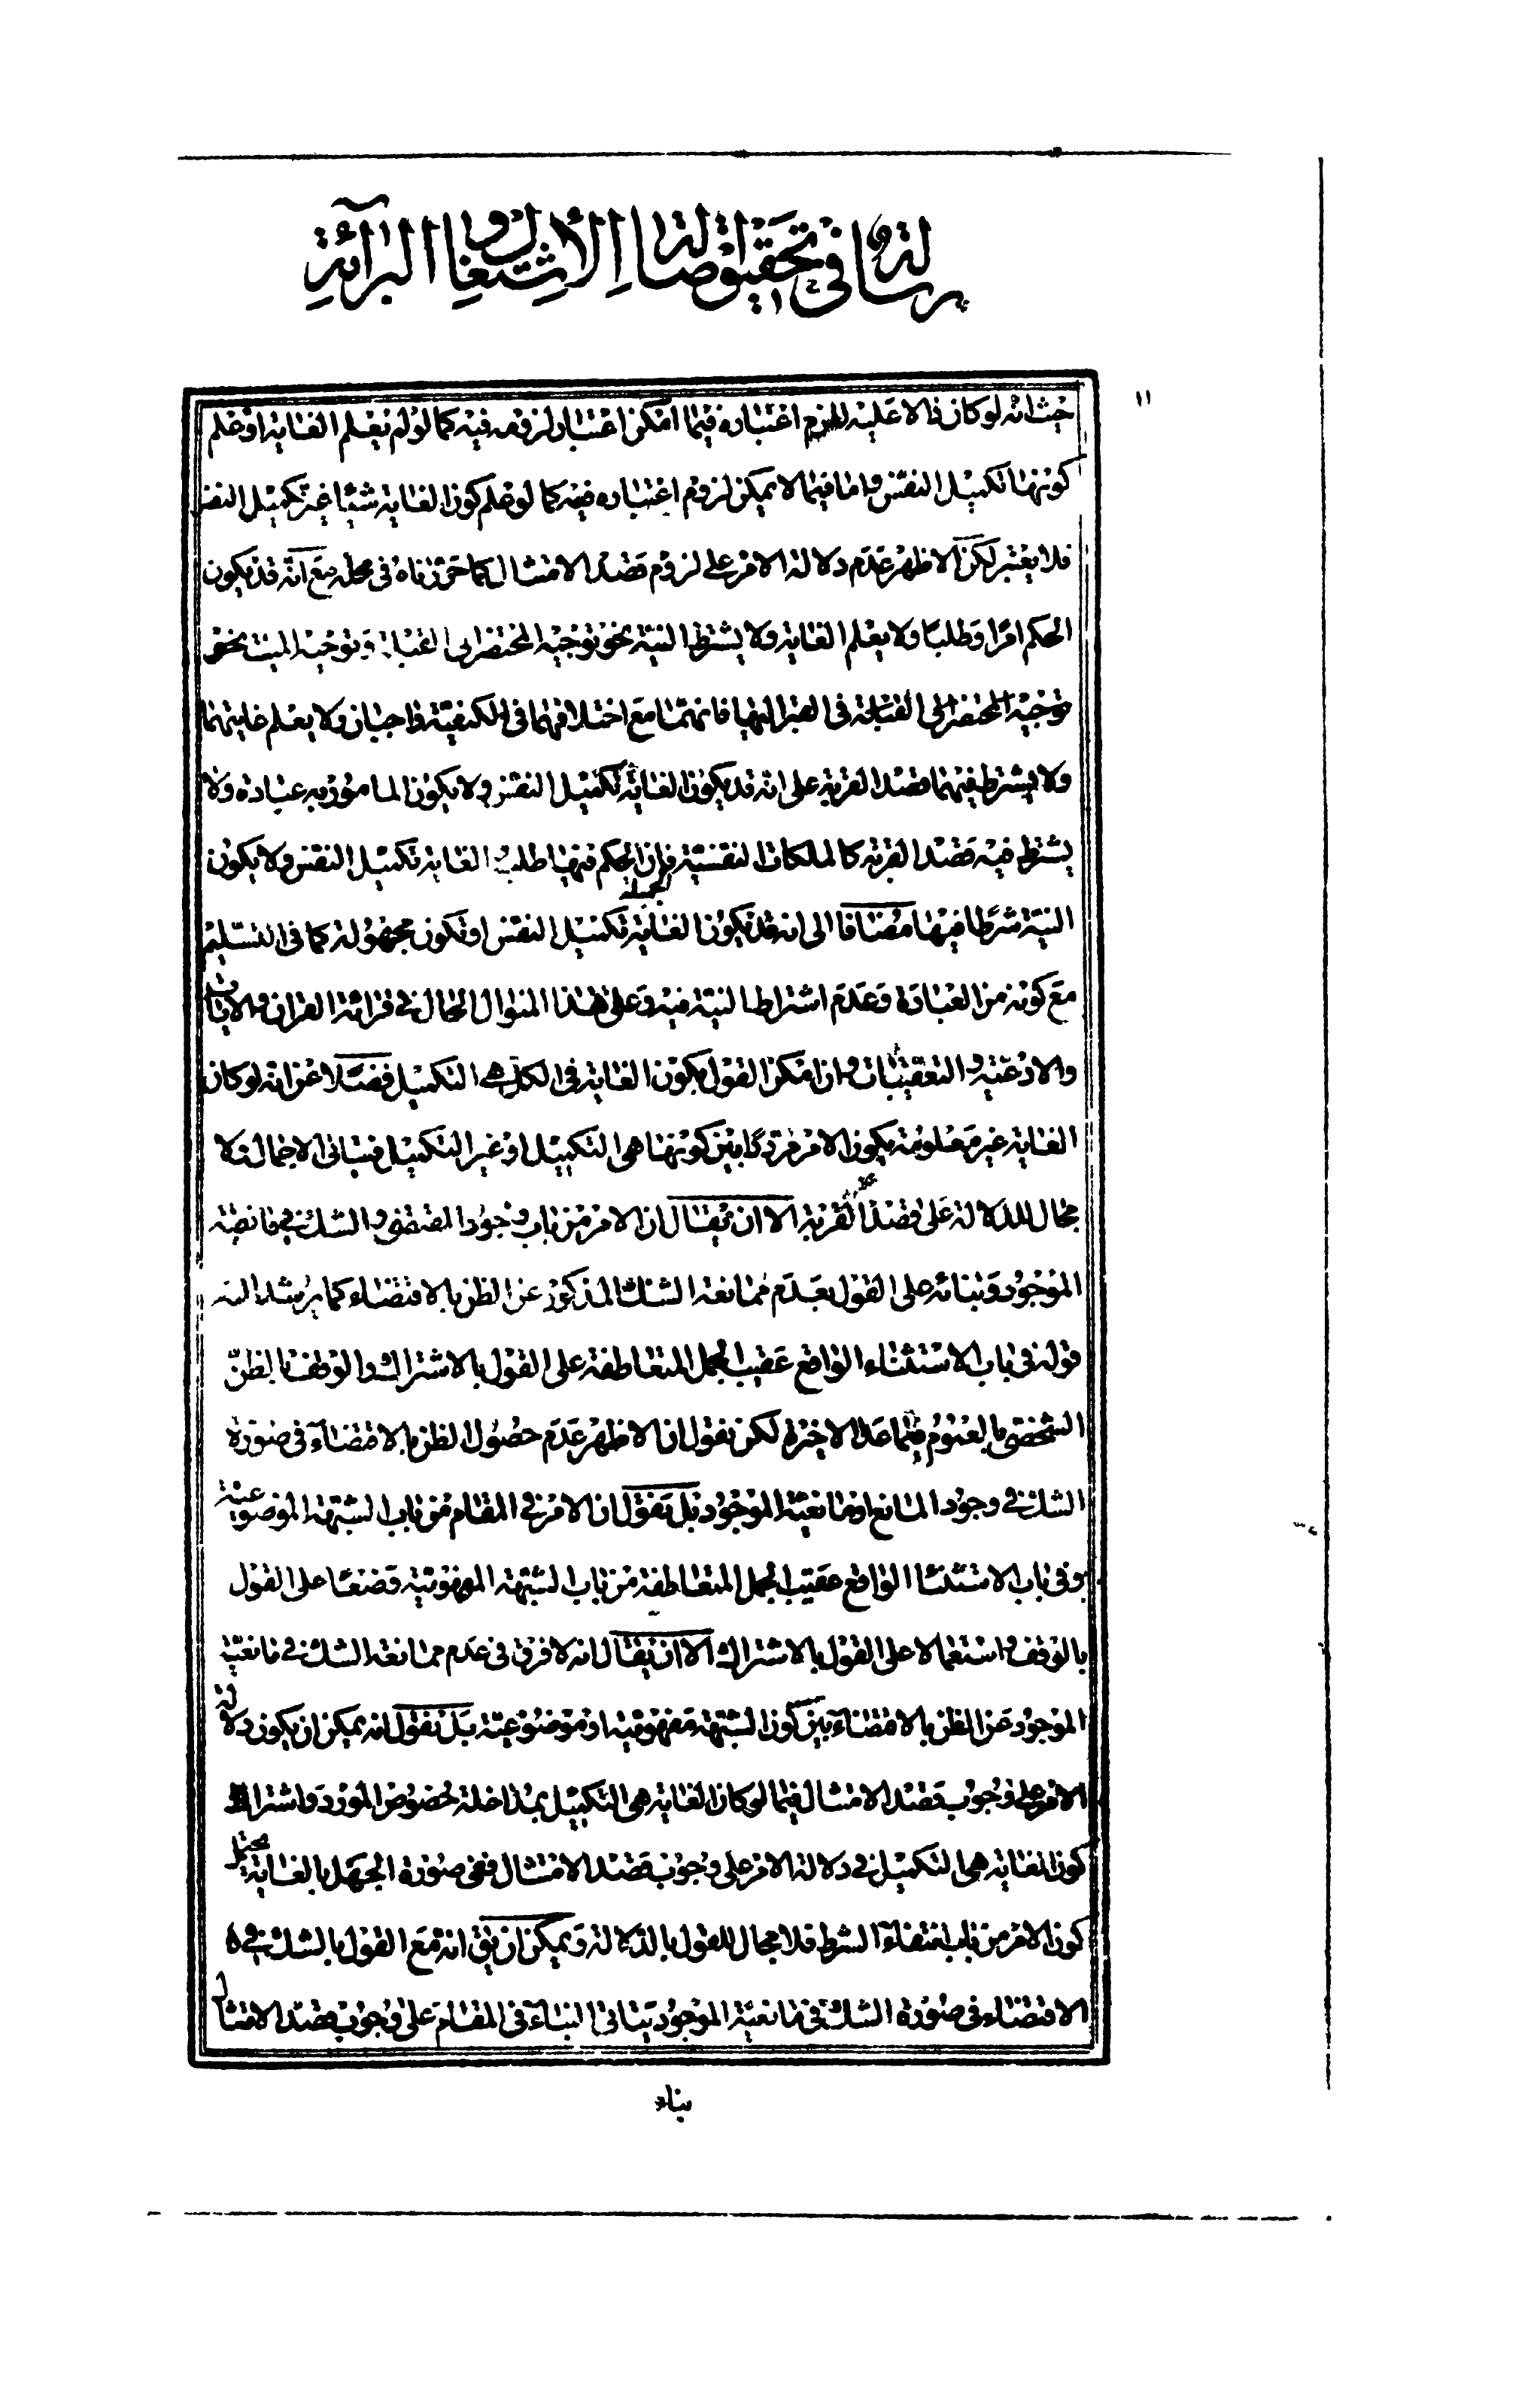 رسالة في تحقيق اصالة الاشتغال و البرآئة
١١
حيث انه لو كان دالا عليه للزم اعتباره فيما امكن اعتبار لزومه فيه كما لو لم يعلم الغاية او علم
كونها تكميل النفس واما فيما لا يمكن لزوم اعتباره فيه كما لو علم كون الغاية شيئا غير تكميل النفس
فلا يعتبر لكن الاظهر عدم دلالة الامر على لزوم قصد الامتثال كما حررناه في محله مع انه قد يكون
الحكم امرا وطلبا ولا يعلم الغاية ولا يشترط النية نحو توجيه المحتضر الى القبلة وتوجيه الميت نحو
توجيه المحتضر الى القبلة في القبر اليها فانهما مع اختلافهما في الكيفية واجبان ولا يعلم غايتهما
ولا يشترط فيهما قصد القربة على انه قد يكون الغاية تكميل النفس ولا يكون المامور به عبادة ولا
يشترط فيه قصد القربة كالملكات النفسية فان الحكم فيها طلب الغاية تكميل النفس ولا يكون
النية شرطا فيها مضافا الى انه قد يكون الغاية تكميل النفس او تكون مجهولة كما في التسليم
مع كونه من العبادة وعدم اشتراط النية فيه وعلى هذا المنوال الحال في قرائة القران والايات
والادعية والتعقيبات وان امكن القول بكون الغاية في الكل هي التكميل فضلا عن انه لو كان
الغاية غير معلومة يكون الامر مرددا بين كونها هي التكميل او غير التكميل فيتاتى الاجمال فلا
مجال للدلالة على قصد القربة الا ان يقال ان الامر من باب وجود المقتضى والشك في مانعية
الموجود وبنائه على القول بعدم ممانعة الشك المذكور عن الظن بالاقتضاء كما يرشد اليه
قوله في باب الاستثناء الواقع عقيب الجمل المتعاطفة على القول بالاشتراك والوقف بالظن
الشخصي بالعموم فيما عدا الاخيرة لكن نقول ان الاظهر عدم حصول الظن بالاقتضاء في صورة
الشك في وجود المانع او مانعية الموجود بل نقول ان الامر في المقام من باب الشبهة الموضوعية
وفي باب الاستثناء الواقع عقيب الجمل المتعاطفة من باب الشبهة المفهومية وضعا على القول
بالوقف واستعمالا على القول بالاشتراك الا ان يقال انه لا فرق في عدم ممانعة الشك في مانعية
الموجود عن الظن بالاقتضاء بين كون الشبهة مفهومية او موضوعية بل نقول انه يمكن ان يكون دلالة
الامر على وجوب قصد الامتثال فيما لو كان الغاية هي التكميل بمداخلة خصوص المورد واشتراط
كون الغاية هي التكميل في دلالة الامر على وجوب قصد الامتثال ففي صورة الجهل بالغاية يحتمل
كون الامر من باب انتفاء الشرط فلا مجال للقول بالدلالة ويمكن ان يق انه مع القول بالشك في
الاقتضاء في صورة الشك في مانعية الموجود يتاتى البناء في المقام على وجوب قصد الامتثال
بناء